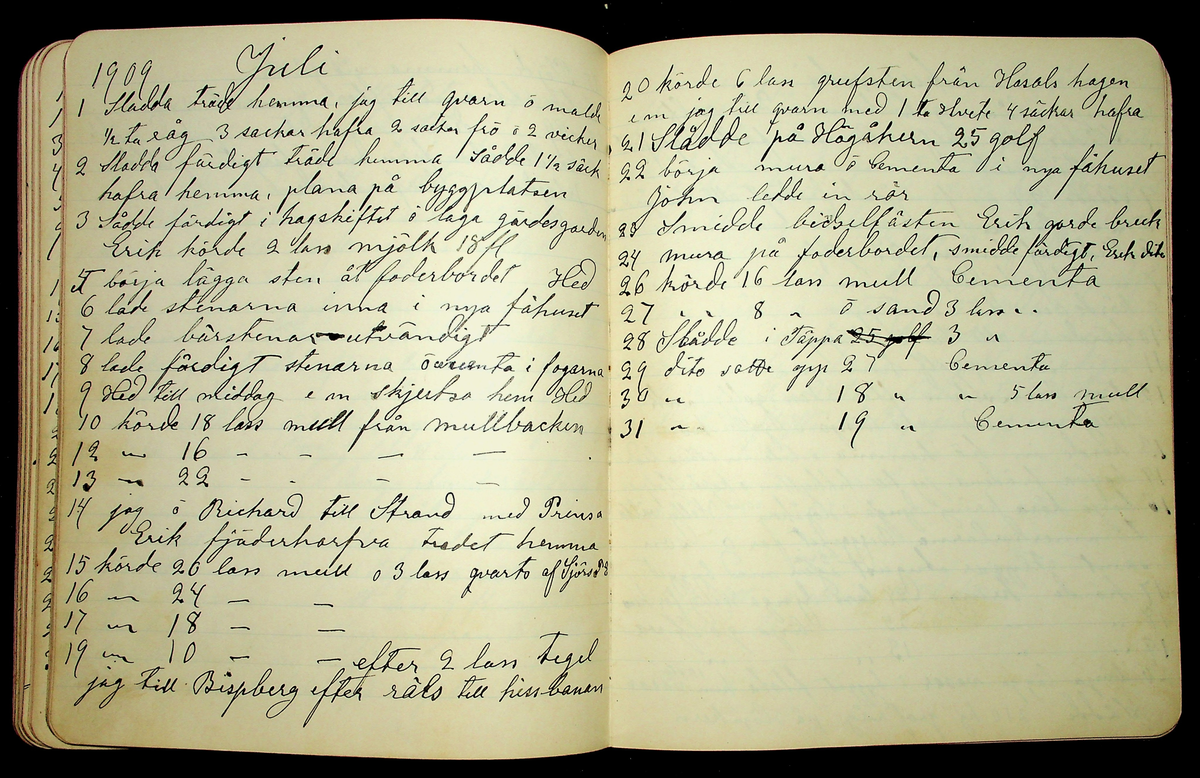 1909 Juli
1 Sladda träde hemma, jag till qvarn ö malde
½ ta råg 3 säckar hafra 2 säcker frö ö 2 vicker
2 Sladda färdigt träde hemma Sådde 1½ säck
hafra hemma, plana på byggplatsen
3 Sådde färdigt i hagskiftet ö laga gärdesgården
Erik körde 2 lass mjölk 18 fl
5 börja lägga sten åt foderbordet Hed
6 lade stenarna inna i nya fähuset
7 lade bärstenar utvändigt
8 lade färdigt stenarna ö i fogarna
9 Hed till middag e m skjutsa hem Hed
10 körde 18 lass mull från mullbacken
12 " 16 — — — —
13 " 22 — - — —
14 jag ö Richard till Strand med Prinsa
Erik fjäderharfva trädet hemma
15 körde 26 lass mull o 3 lass qvarto af
16 " 24 — —
17 " 18 — —
19 " 10 — — efter 2 lass tegel
jag till Bispberg efter räls till hissbanan
20 körde 6 lass grufsten från Hasals hagen
e m jag till qvarn med 1 ta Hvete 4 säckar hafra
21 Slådde på Högåkern 25 golf
22 börja mura ö Cementa i nya fähuset
John ledde in rör
23 Smidde bindselfästen Erik gorde bruk
24 mura på foderbordet, smidde färdigt, Erik dito
26 körde 16 lass mull Cementa
27 " " 8 " ö sand 3 lass "
28 Slådde i Täppa 25 golf 3 "
29 dito satte opp 27 Cementa
30 " 18 " " 5 lass mull
31 " 19 " Cementa